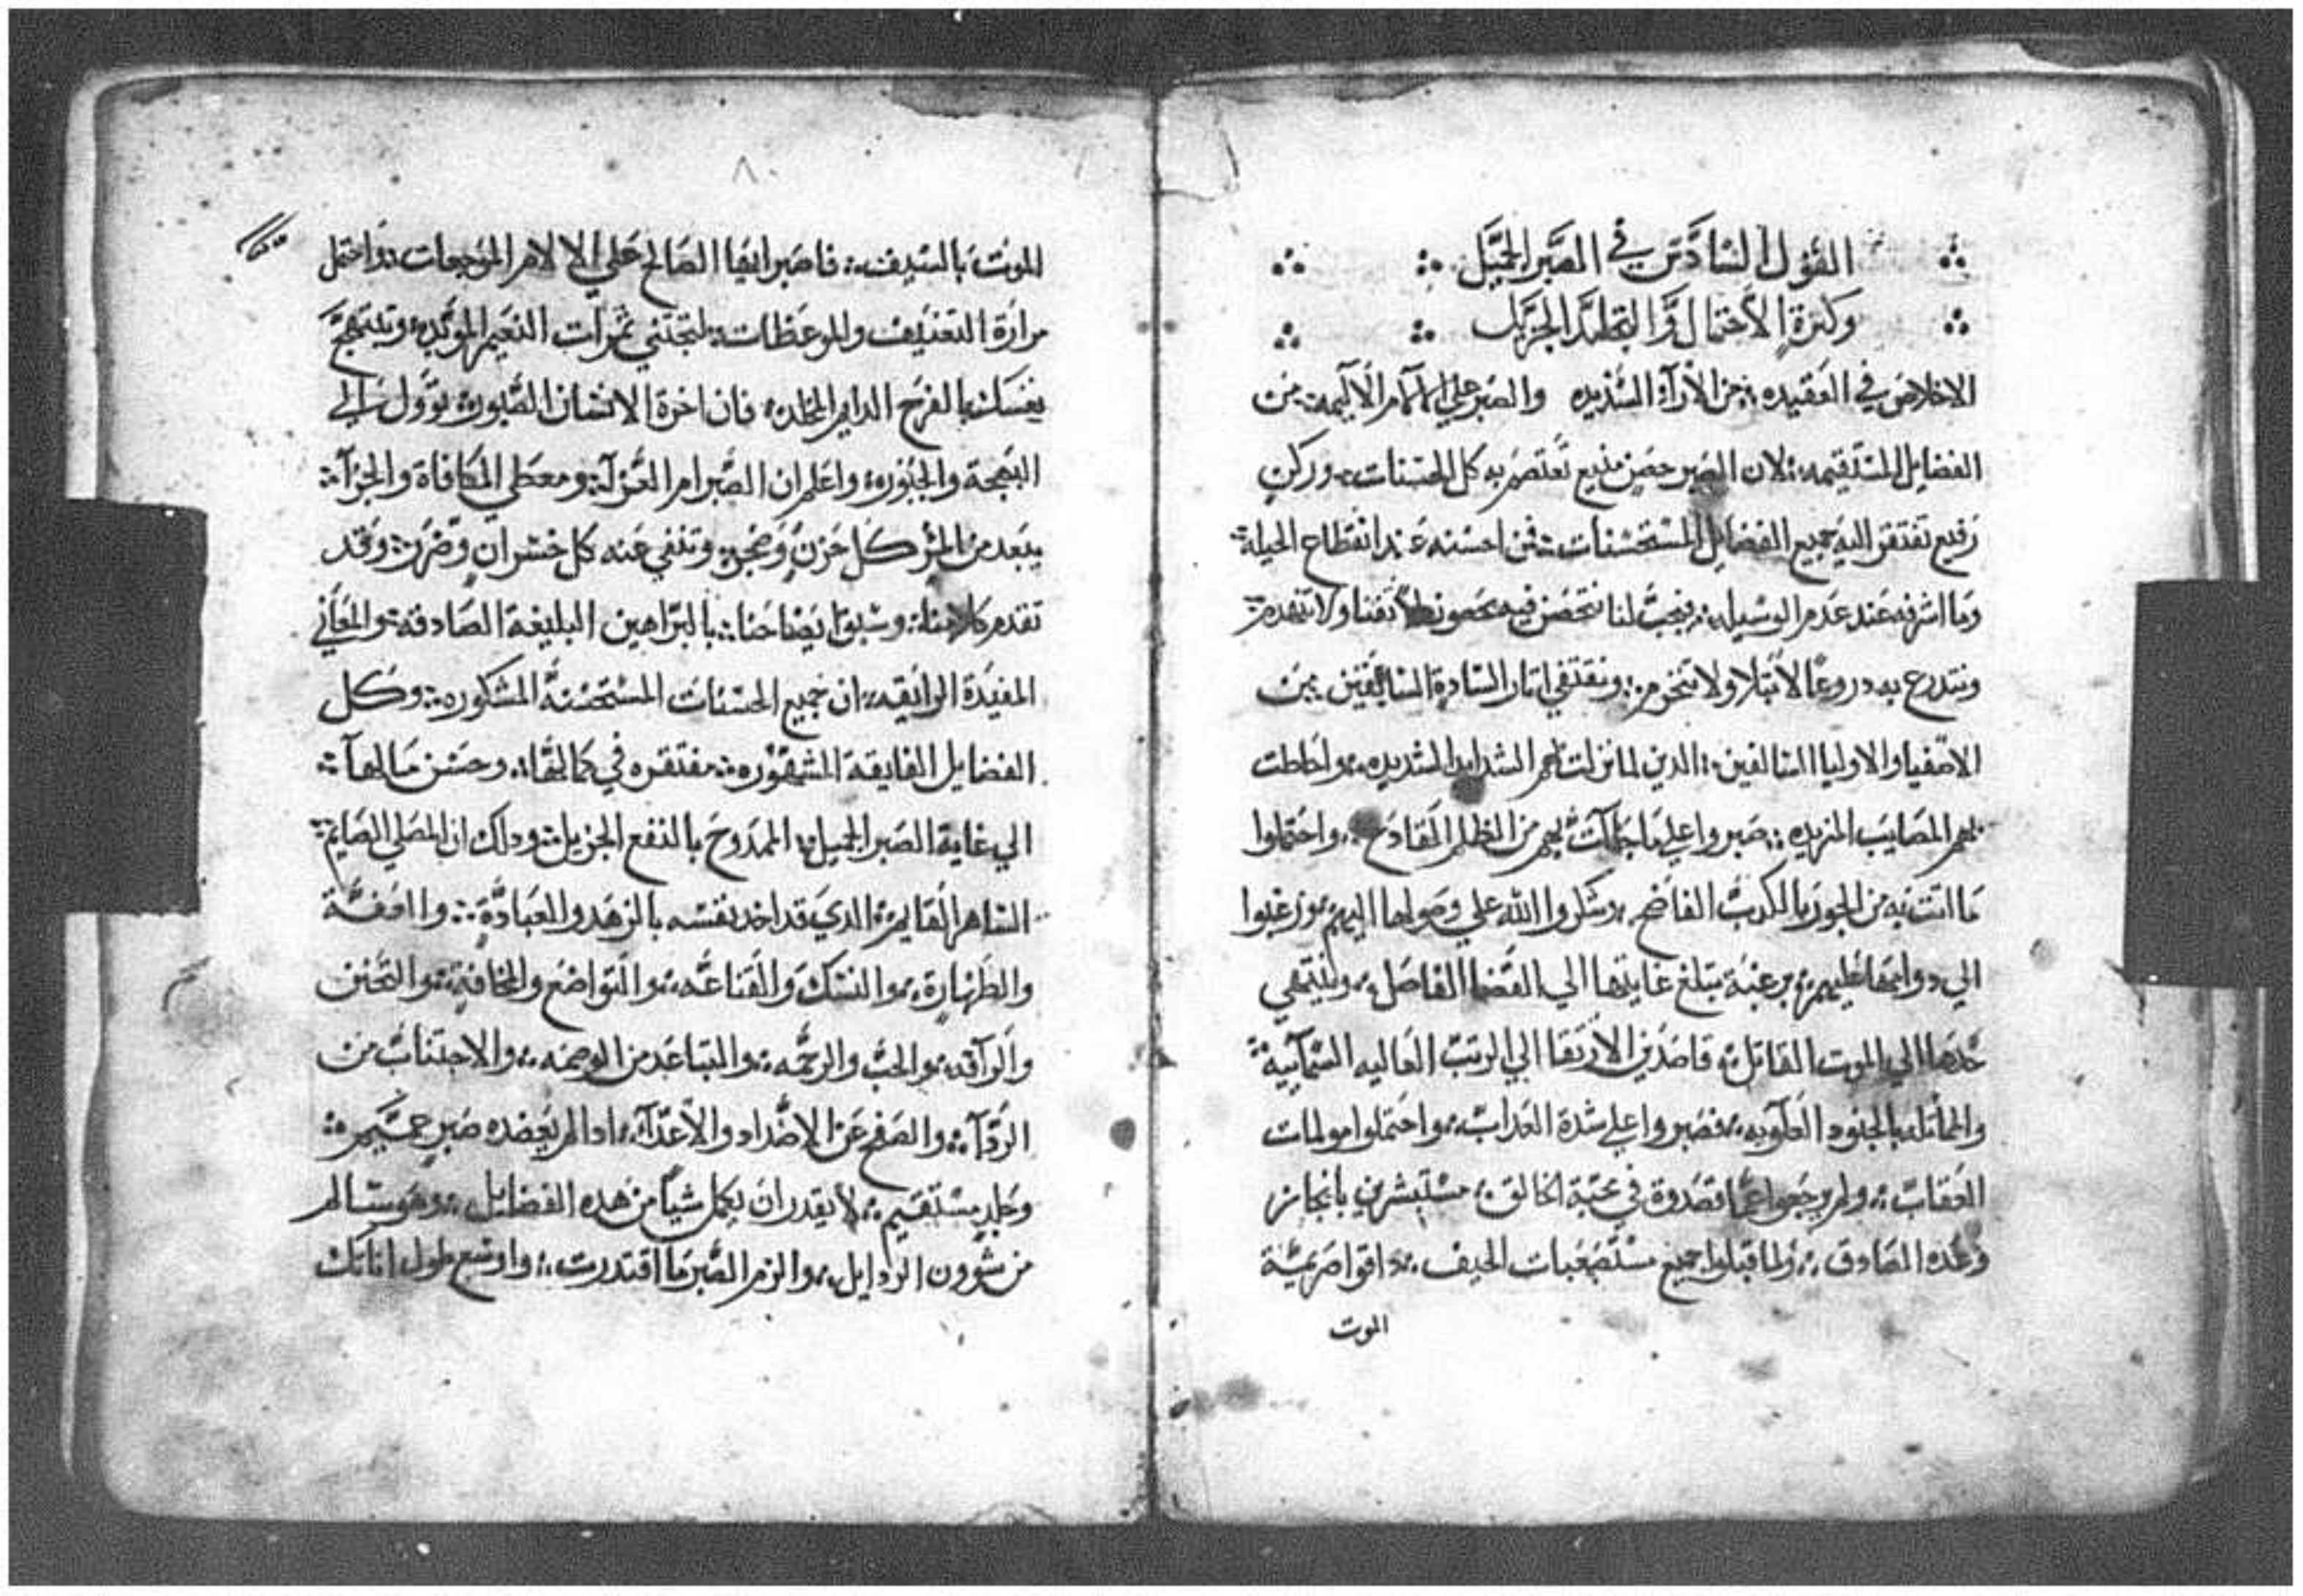 القول السادس في الصبر الجميل
وكثرة الاحتمال والتجلد الجزيل
الاخلاص في العقيده من الأرآء السديده والصبر علي الآلام الأليمه من
الفضايل المستقيمه لان الصبر حصن منيع تعتصم به كل الحسنات وركن
رفيع تفتقر اليه جميع الفضايل المستحسنات فمن احسنه عند انقطاع الحيلة
وما اشرفه عند عدم الوسيله فيجب لنا نتحصن فيه بحصون لا تفنا ولا تنهدم
ونتدرع به دروعًا لا تبلا ولا تنخرم ونقتفي اتار السادة السابقين من
الاصفيا والاوليا السالفين الدين لما نزلت بهم الشدايد الشديده واحاطت
بهم المصايب المزيده صبروا علي ما جآت بهم من الظلم القادح واحتملوا
ما اتت به من الجور بالكرب الفاضح وشكروا الله علي وصولها اليهم ورغبوا
الي دوامها عليهم برغبة تبلغ غايتها الي القضا الفاصل وينتهي
حدها الي الموت القاتل قاصدين الارتقا الي الرتب العاليه السمآيية
والمماتله بالجنود العلويه فصبروا علي شدة العداب واحتملوا مولمات
العقاب ولم يرجعوا عما قصدوة في محبة الخالق مستبشرين بانجاز
وعده الصادق ولما قبلوا جميع مستصعبات الحيف داقوا صريمية
الموت
الموت بالسيف فاصبر ايها الصالح علي الالام الموجعات واحتمل
مرارة التعنيف والموعظات لتجتني ثمرات النعيم الموبد وتبتهج
نفسك بالفرح الدايم المخلد فان اخرة الانسان الصبور توول الي
البهجة والحبور واعلم ان الصبر ام العزآ ومعطي المكافاة والجزآ
يبعد من المر كل حزن وضجر وتنفي عنه كل خسران وضرر وقد
تقدم كلامنا وسبق ايضاحنا بالبراهين البليغة الصادقة والمعاني
المفيدة الرايقه ان جميع الحسنات المستحسنة المشكوره وكل
الفضايل الفايقة المشهوره مفتقره في كمالها وحسن مالها
الي غاية الصبر الجميل الممدوح بالنفع الجزيل ودلك ان المصلي الصايم
الساهر القايم الدي قد اخد نفسه بالزهد والعبادة والعفة
والطهارة والنسك والقناعه والتواضع والمخافة والتحنن
والرآفه والحب والرحمه والتباعد من الوصمه والاجتناب من
الردآ والصفح عن الاضداد والاعدآ ادا لم يعضده صبر جسيم
وجلد مستقيم لا يقدر ان يكمل شياً من هده الفضايل وهو سالم
من شوون الردايل والزم الصبر ما اقتدرت واوسع طول اناتك